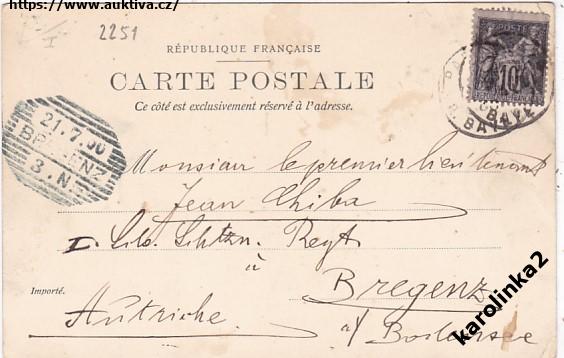 https://www.auktiva.cz/
2251
RÉPUBLIQUE FRANÇAISE
CARTE POSTALE
Ce côté est exclusivement réservé à l'adresse.
POSTE
10
21.7.00
BREGENZ
3.N
Monsieur le premier lieutenant
Jean Chiba
I. Regt
à
Bregenz
Importé.
Autriche
a/ Bodensee
karolinka2